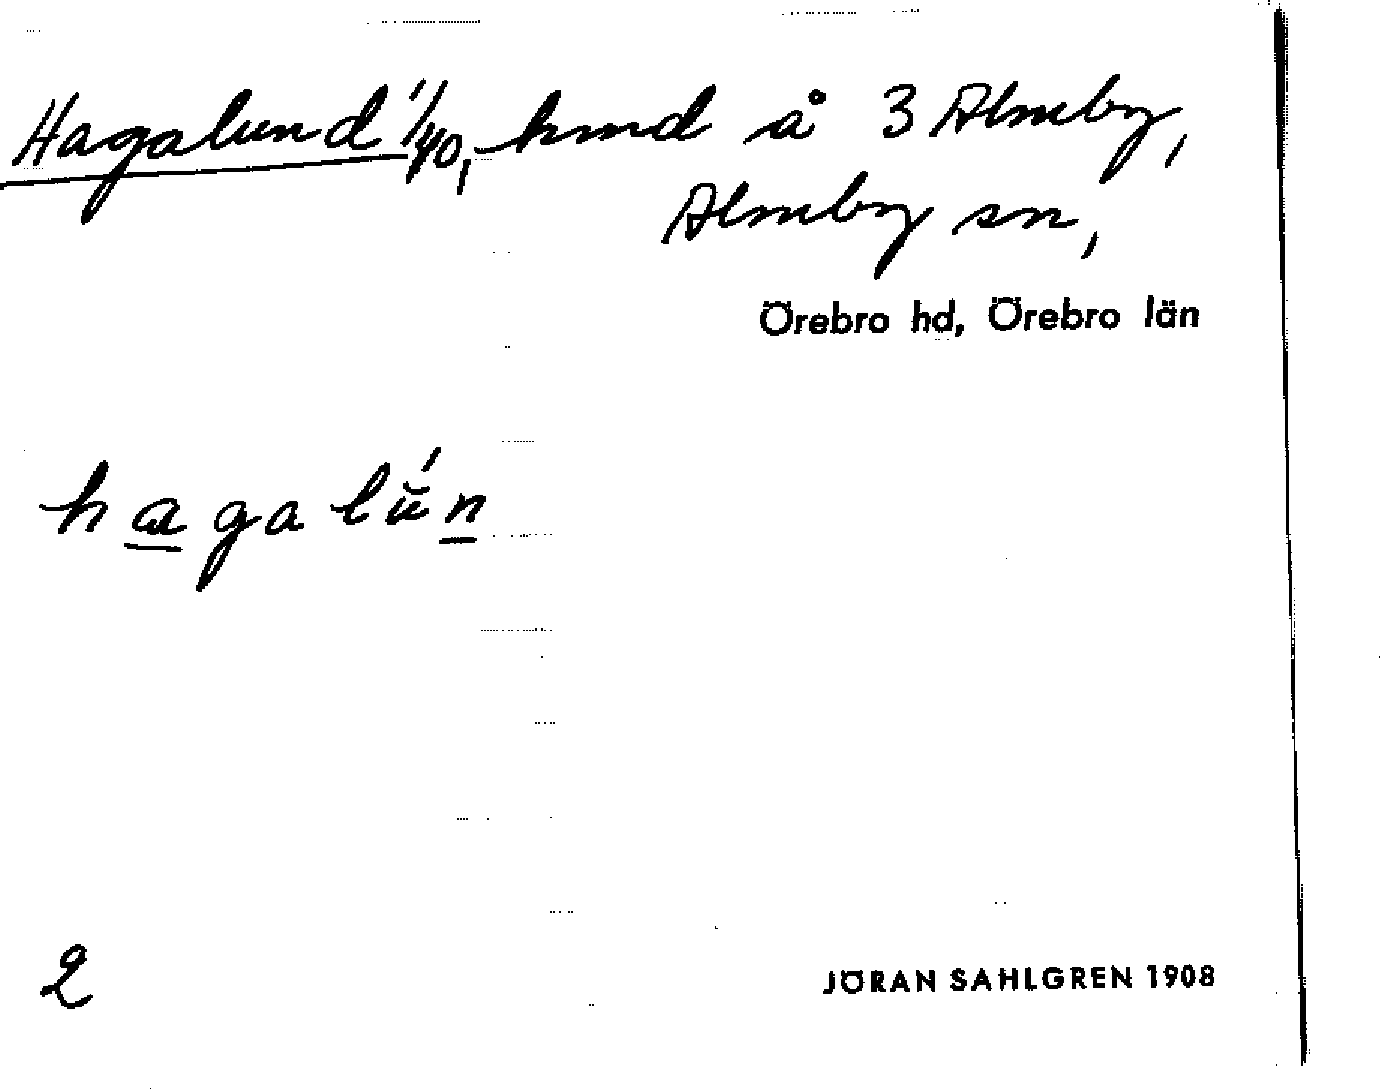 Hagalund 1/40, hmd å 3 Almby,
Almby sn,
Örebro hd, Örebro län
hagalŭ́n
2
JÖRAN SAHLGREN 1908